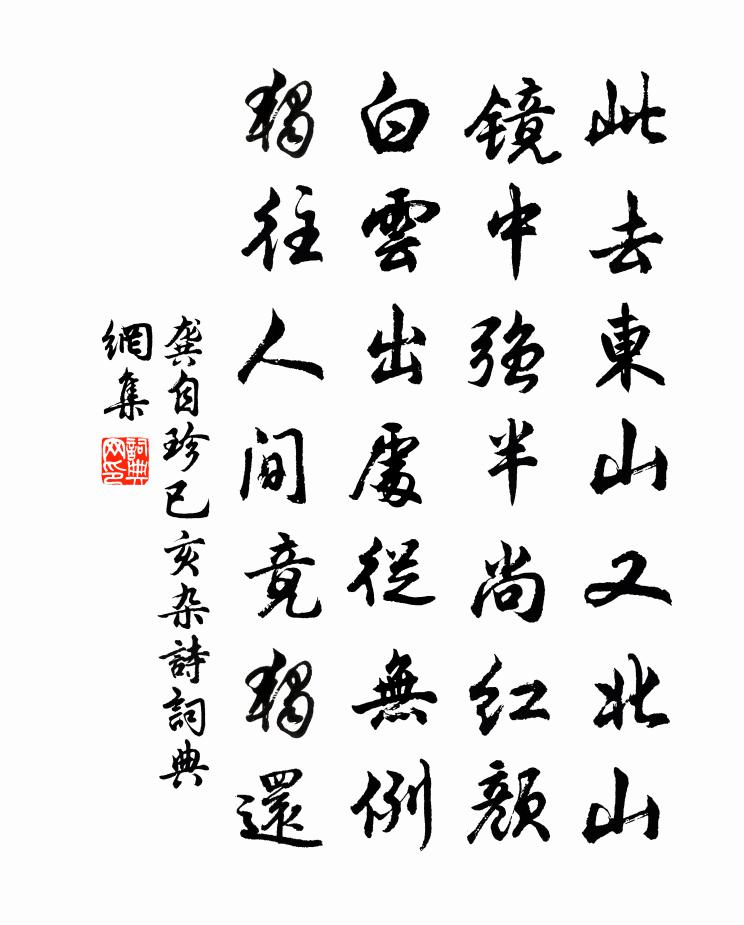 此去東山又北山
镜中强半尚红颜
白雲出處從無例
獨往人間竟獨還
龚自珍己亥杂詩詞典
網集
詞典
网印